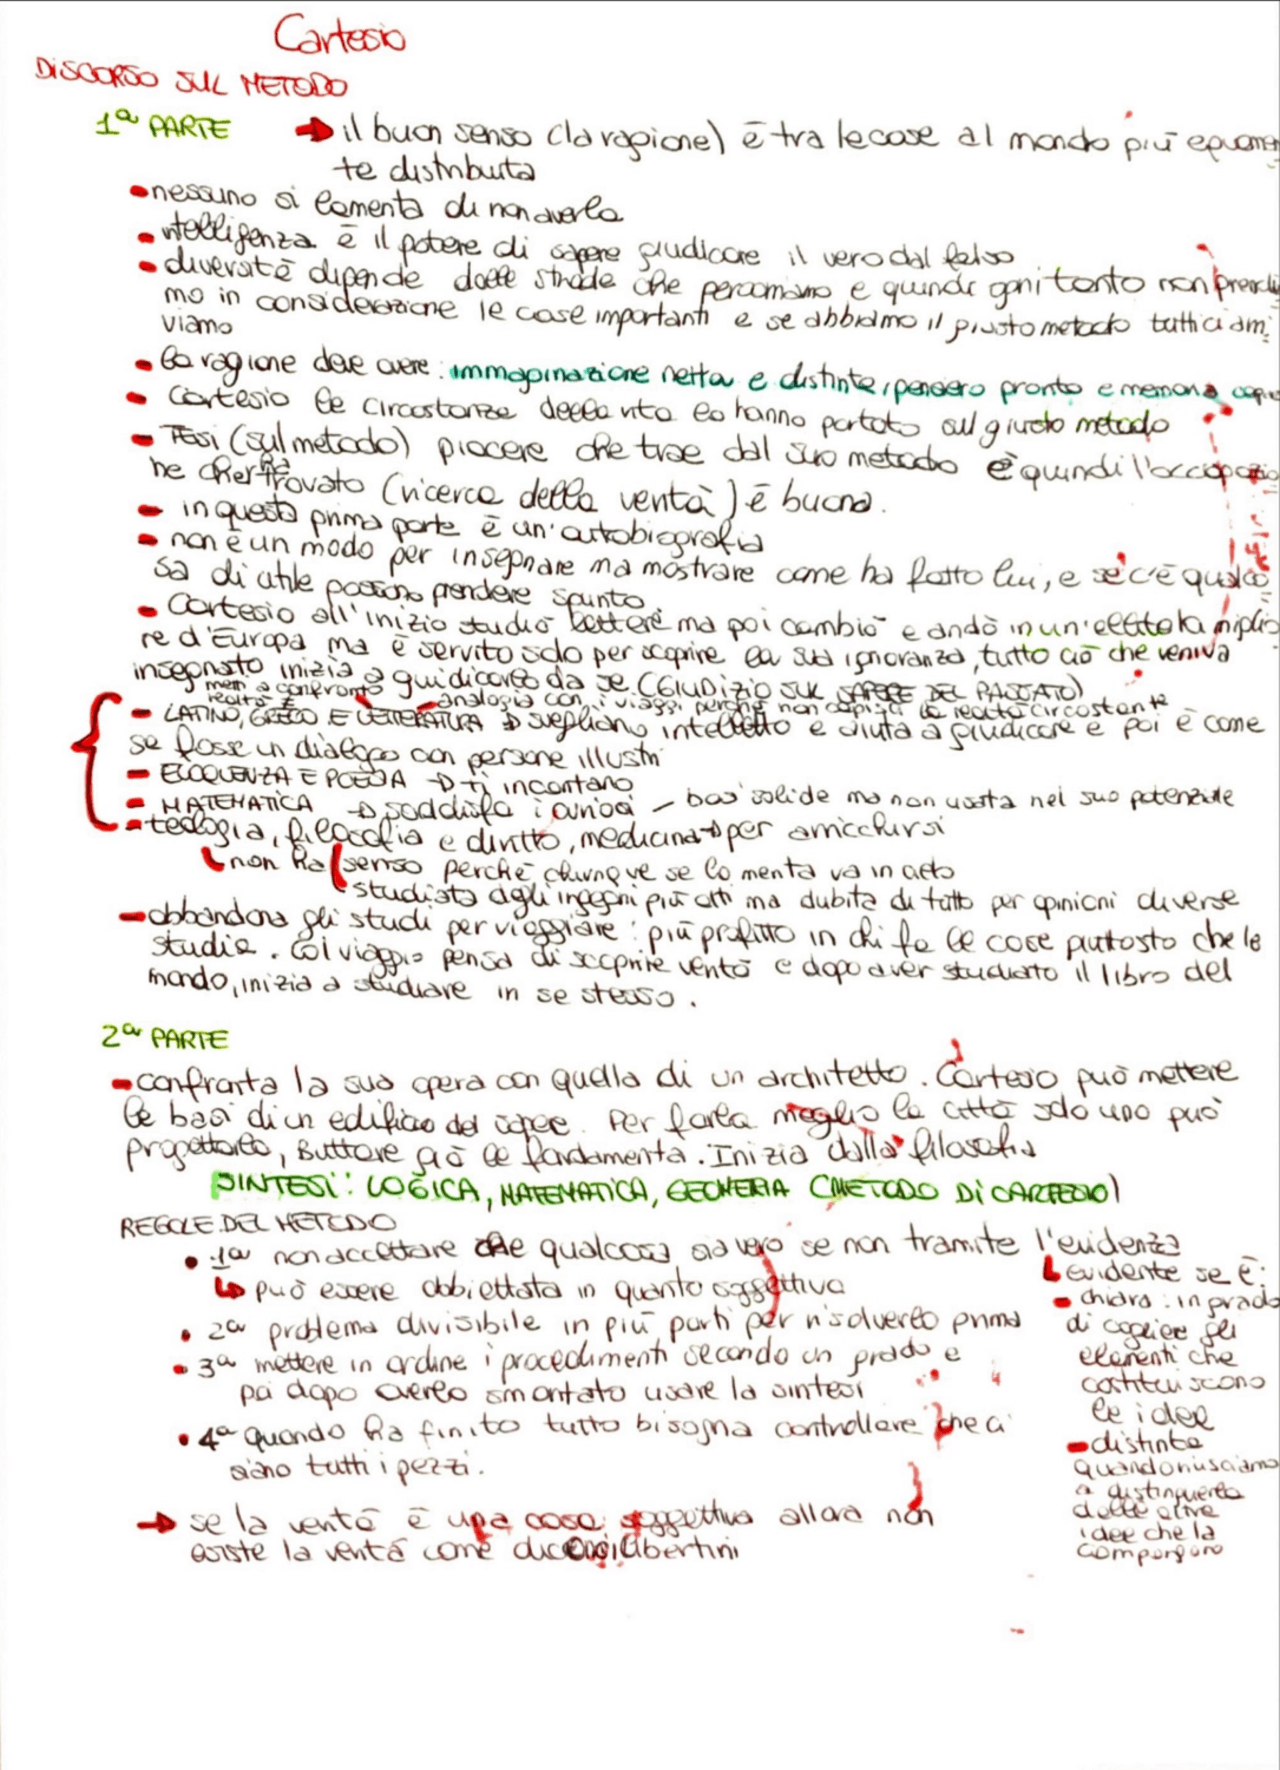 Cartesio
DISCORSO SUL METODO
1ª PARTE → il buon senso (la ragione) è tra le cose al mondo più equamen
te distribuita
- nessuno si lamenta di non averla
- intelligenza è il potere di sapere giudicare il vero dal falso
- diversità dipende dalle strade che percorriamo e quindi ogni tanto non prendia
mo in considerazione le cose importanti e se abbiamo il giusto metodo tutti ci arri
viamo
- la ragione deve avere: immaginazione netta e distinta, pensiero pronto e memoria
- Cartesio le circostanze della vita lo hanno portato sul giusto metodo
- TESI (sul metodo) piacere che trae dal suo metodo è quindi l'occupazio
ne che ha trovato (ricerca della verità) è buona.
- in questa prima parte è un'autobiografia
- non è un modo per insegnare ma mostrare come ha fatto lui, e se c'è qualco
sa di utile possono prendere spunto
- Cartesio all'inizio studiò lettere ma poi cambiò e andò in un' la miglio
re d'Europa ma è servito solo per scoprire la sua ignoranza, tutto ciò che veniva
insegnato inizia a guidicarlo da se (GIUDIZIO SUL SAPERE DEL PASSATO)
a confronto - analogia con i viaggi perché non capisci la realtà circostante
realtà è
- LATINO, GRECO E LETTERATURA → svegliano intelletto e aiuta a giudicare e poi è come
se fosse un dialogo con persone illustri
- ELOQUENZA E POESIA → ti incantano
- MATEMATICA → soddisfa i curiosi - basi solide ma non usata nel suo potenziale
- teologia, filosofia e diritto, medicina → per arricchirsi
non ha senso perché chiunque se lo merita va in cielo
studiata dagli ingegni più alti ma dubita di tutto per opinioni diverse
- abbandona gli studi per viaggiare: più profitto in chi fa le cose piuttosto che le
studia. Col viaggio pensa di scoprire verità e dopo aver studiato il libro del
mondo, inizia a studiare in se stesso.
2ª PARTE
- confronta la sua opera con quella di un architetto. Cartesio può mettere
le basi di un edificio del sapere. Per farla meglio la città solo uno può
progettarlo, Buttare giò le fondamenta. Inizia dalla filosofia
SINTESI: LOGICA, MATEMATICA, GEOMERIA (METODO DI CARTESIO)
REGOLE DEL METODO
• 1ª non accettare che qualcosa sia vero se non tramite l'evidenza
↳ può essere obbiettata in quanto soggettiva
• 2ª problema divisibile in più parti per risolverlo prima
• 3ª mettere in ordine i procedimenti secondo un grado e
poi dopo averlo smontato usare la sintesi
• 4ª quando ha finito tutto bisogna controllare che ci
siano tutti i pezzi.
→ se la verità è una cosa soggettiva allora non
esiste la verità come dicono i libertini
↳ evidente se è:
- chiara: in grado
di cogliere gli
elementi che
costituiscono
le idee
- distinta
quando riusciamo
a distinguerla
dalle altre
idee che la
compongono